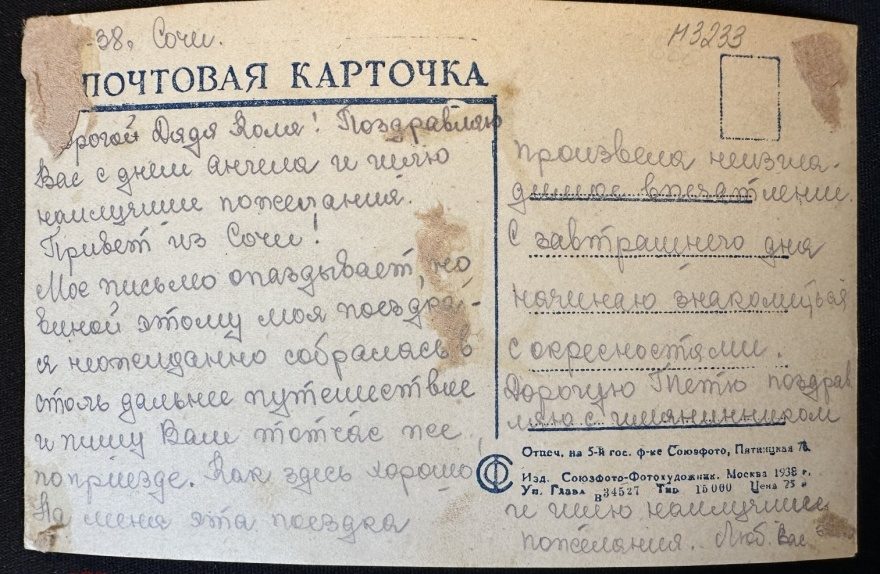 -38, Сочи.
М3233
ПОЧТОВАЯ КАРТОЧКА
орогой Дядя Коля! Поздравляю
Вас с днем ангела и шлю
наилучшие пожелания.
Привет из Сочи!
Мое письмо опаздывает, но
виной этому моя поездка-
я неожиданно собралась в
столь дальнее путешествие
и пишу Вам тотчас же,
по приезде. Как здесь хорошо
На меня эта поездка
произвела неизгла-
димое впечатление.
С завтрашнего дня
начинаю знакомиться
с окресностями.
Дорогую Тетю поздрав
ляю с имянинником
Отпеч. на 5-й гос. ф-ке Союзфото, Пятницкая 71.
Изд. Союзфото-Фотохудожник. Москва 1938 г.
Уп. Главл В34527 Тир. 15000 Цена 75 к
и шлю наилучшие
пожелания. Люб. Вас